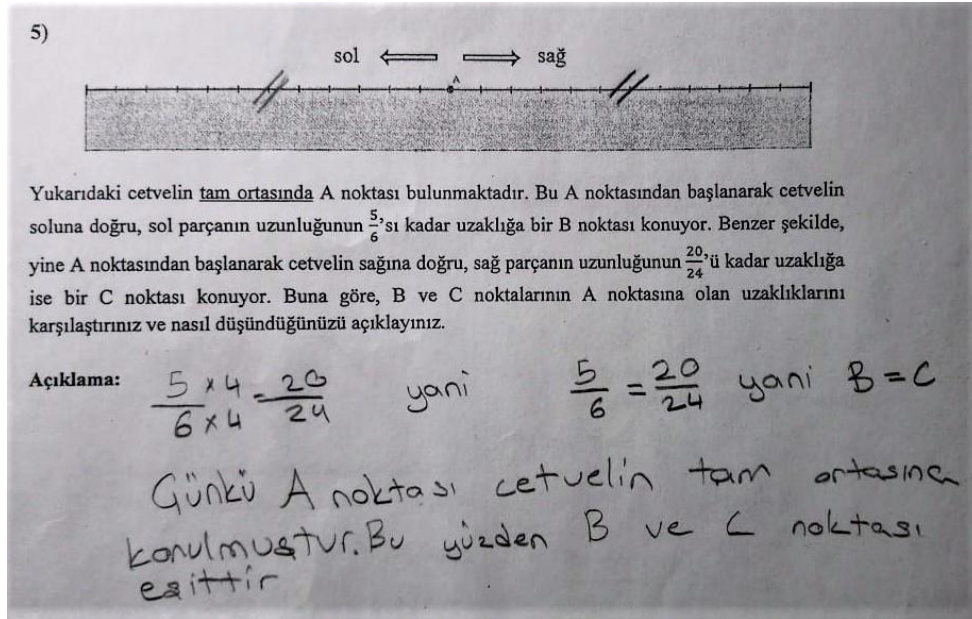 5)
sol sağ
A
Yukarıdaki cetvelin tam ortasında A noktası bulunmaktadır. Bu A noktasından başlanarak cetvelin
soluna doğru, sol parçanın uzunluğunun 5/6'sı kadar uzaklığa bir B noktası konuyor. Benzer şekilde,
yine A noktasından başlanarak cetvelin sağına doğru, sağ parçanın uzunluğunun 20/24'ü kadar uzaklığa
ise bir C noktası konuyor. Buna göre, B ve C noktalarının A noktasına olan uzaklıklarını
karşılaştırınız ve nasıl düşündüğünüzü açıklayınız.
Açıklama: 5 x 4 / 6 x 4 = 20/24 yani 5/6 = 20/24 yani B = C
Günkü A noktası cetvelin tam ortasına
konulmuştur. Bu yüzden B ve C noktası
eşittir